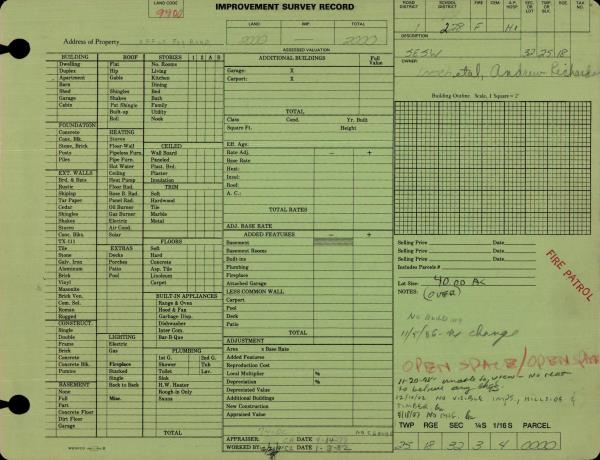 LAND CODE
9900
IMPROVEMENT SURVEY RECORD
LAND IMP. TOTAL
0000 — 2000
ASSESSED VALUATION
Address of Property
ROAD DISTRICT SCHOOL DISTRICT FIRE CEM. A.P. HOSP SEC. OR LOT TWP. OR BLK. RGE. TAX NO.
1 228 F H1
DESCRIPTION
SESW 32-25-18
OWNER
etal, Andrew Richards
BUILDING ROOF STORIES 1 2 A B
Dwelling Flat No. Rooms
Duplex Hip Living
Apartment Gable Kitchen
Barn Dining
Shed Shingles Bed
Garage Shakes Bath
Cabin Pat Shingle Family
Built-up Utility
Roll Nook
FOUNDATION
Concrete HEATING
Conc. Blk. Stoves CEILED
Stone, Brick Floor-Wall Wall Board
Posts Pipeless Furn. Paneled
Piles Pipe Furn. Plast. Bed.
Hot Water Plaster
EXT. WALLS Ceiling Insulation
Brd. & Bats Heat Pump TRIM
Rustic Floor Rad. Soft
Shiplap Base B. Rad. Hardwood
Tar Paper Panel Rad. Tile
Cedar Oil Burner Marble
Shingles Gas Burner Metal
Shakes Electric
Stucco Air Cond.
Conc. Blks. Solar FLOORS
TX-111 Soft
Tile EXTRAS Hard
Stone Decks Concrete
Galv. Iron Porches Asp. Tile
Aluminum Patio Linoleum
Brick Pool Carpet
Vinyl
Masonite BUILT-IN APPLIANCES
Brick Ven. Range & Oven
Com. Sel. Hood & Fan
Roman Garbage Disp.
Rugged Dishwasher
CONSTRUCT. Inter Com.
Single Bar-B-Que
Double LIGHTING
Frame Electric PLUMBING
Brick Gas 1st G. 2nd G.
Concrete Shower Tub
Concrete Blk. FIREPLACE Toilet Lav.
Pumice Stacked Sink
Single H.W. Heater
BASEMENT Back to Back Rough-in Only
None Full Misc. Sauna
Full
Part
Concrete Floor
Dirt Floor
Garage
TOTAL
ADDITIONAL BUILDINGS Full Value
Garage: X
Carport: X
TOTAL
Class Cond. Yr. Built
Square Ft. Height
Eff. Age:
Rate Adj. – +
Base Rate
Heat:
Insul:
Roof:
A. C.:
TOTAL RATES
ADJ. BASE RATE
ADDED FEATURES – +
Basement
Basement Rooms
Built-ins
Plumbing
Fireplace
Attached Garage
LESS COMMON WALL
Carport
Pool
Deck
Patio
TOTAL
ADJUSTMENT
Area x Base Rate
Added Features
Reproduction Cost
Local Multiplier %
Depreciation %
Depreciated Value
Additional Buildings
New Construction
Appraised Value
APPRAISER: DATE
WORKED BY: DATE
Building Outline. Scale, 1 Square = 2'
Selling Price Date
Selling Price Date
Selling Price Date
Includes Parcels #
FIRE PATROL
Lot Size: 40.00 AC
NOTES: (OVER)
No BLDG
11/5/86 - No change
OPEN SPACE/OPEN SPACE
11-20-91 unable to view - no reason
to believe any chgs
12/10/02 NO VISIBLE IMPS, HILLSIDE &
TIMBER
TWP RGE SEC ¼S 1/16 S PARCEL
25 18 32 3 4 0000